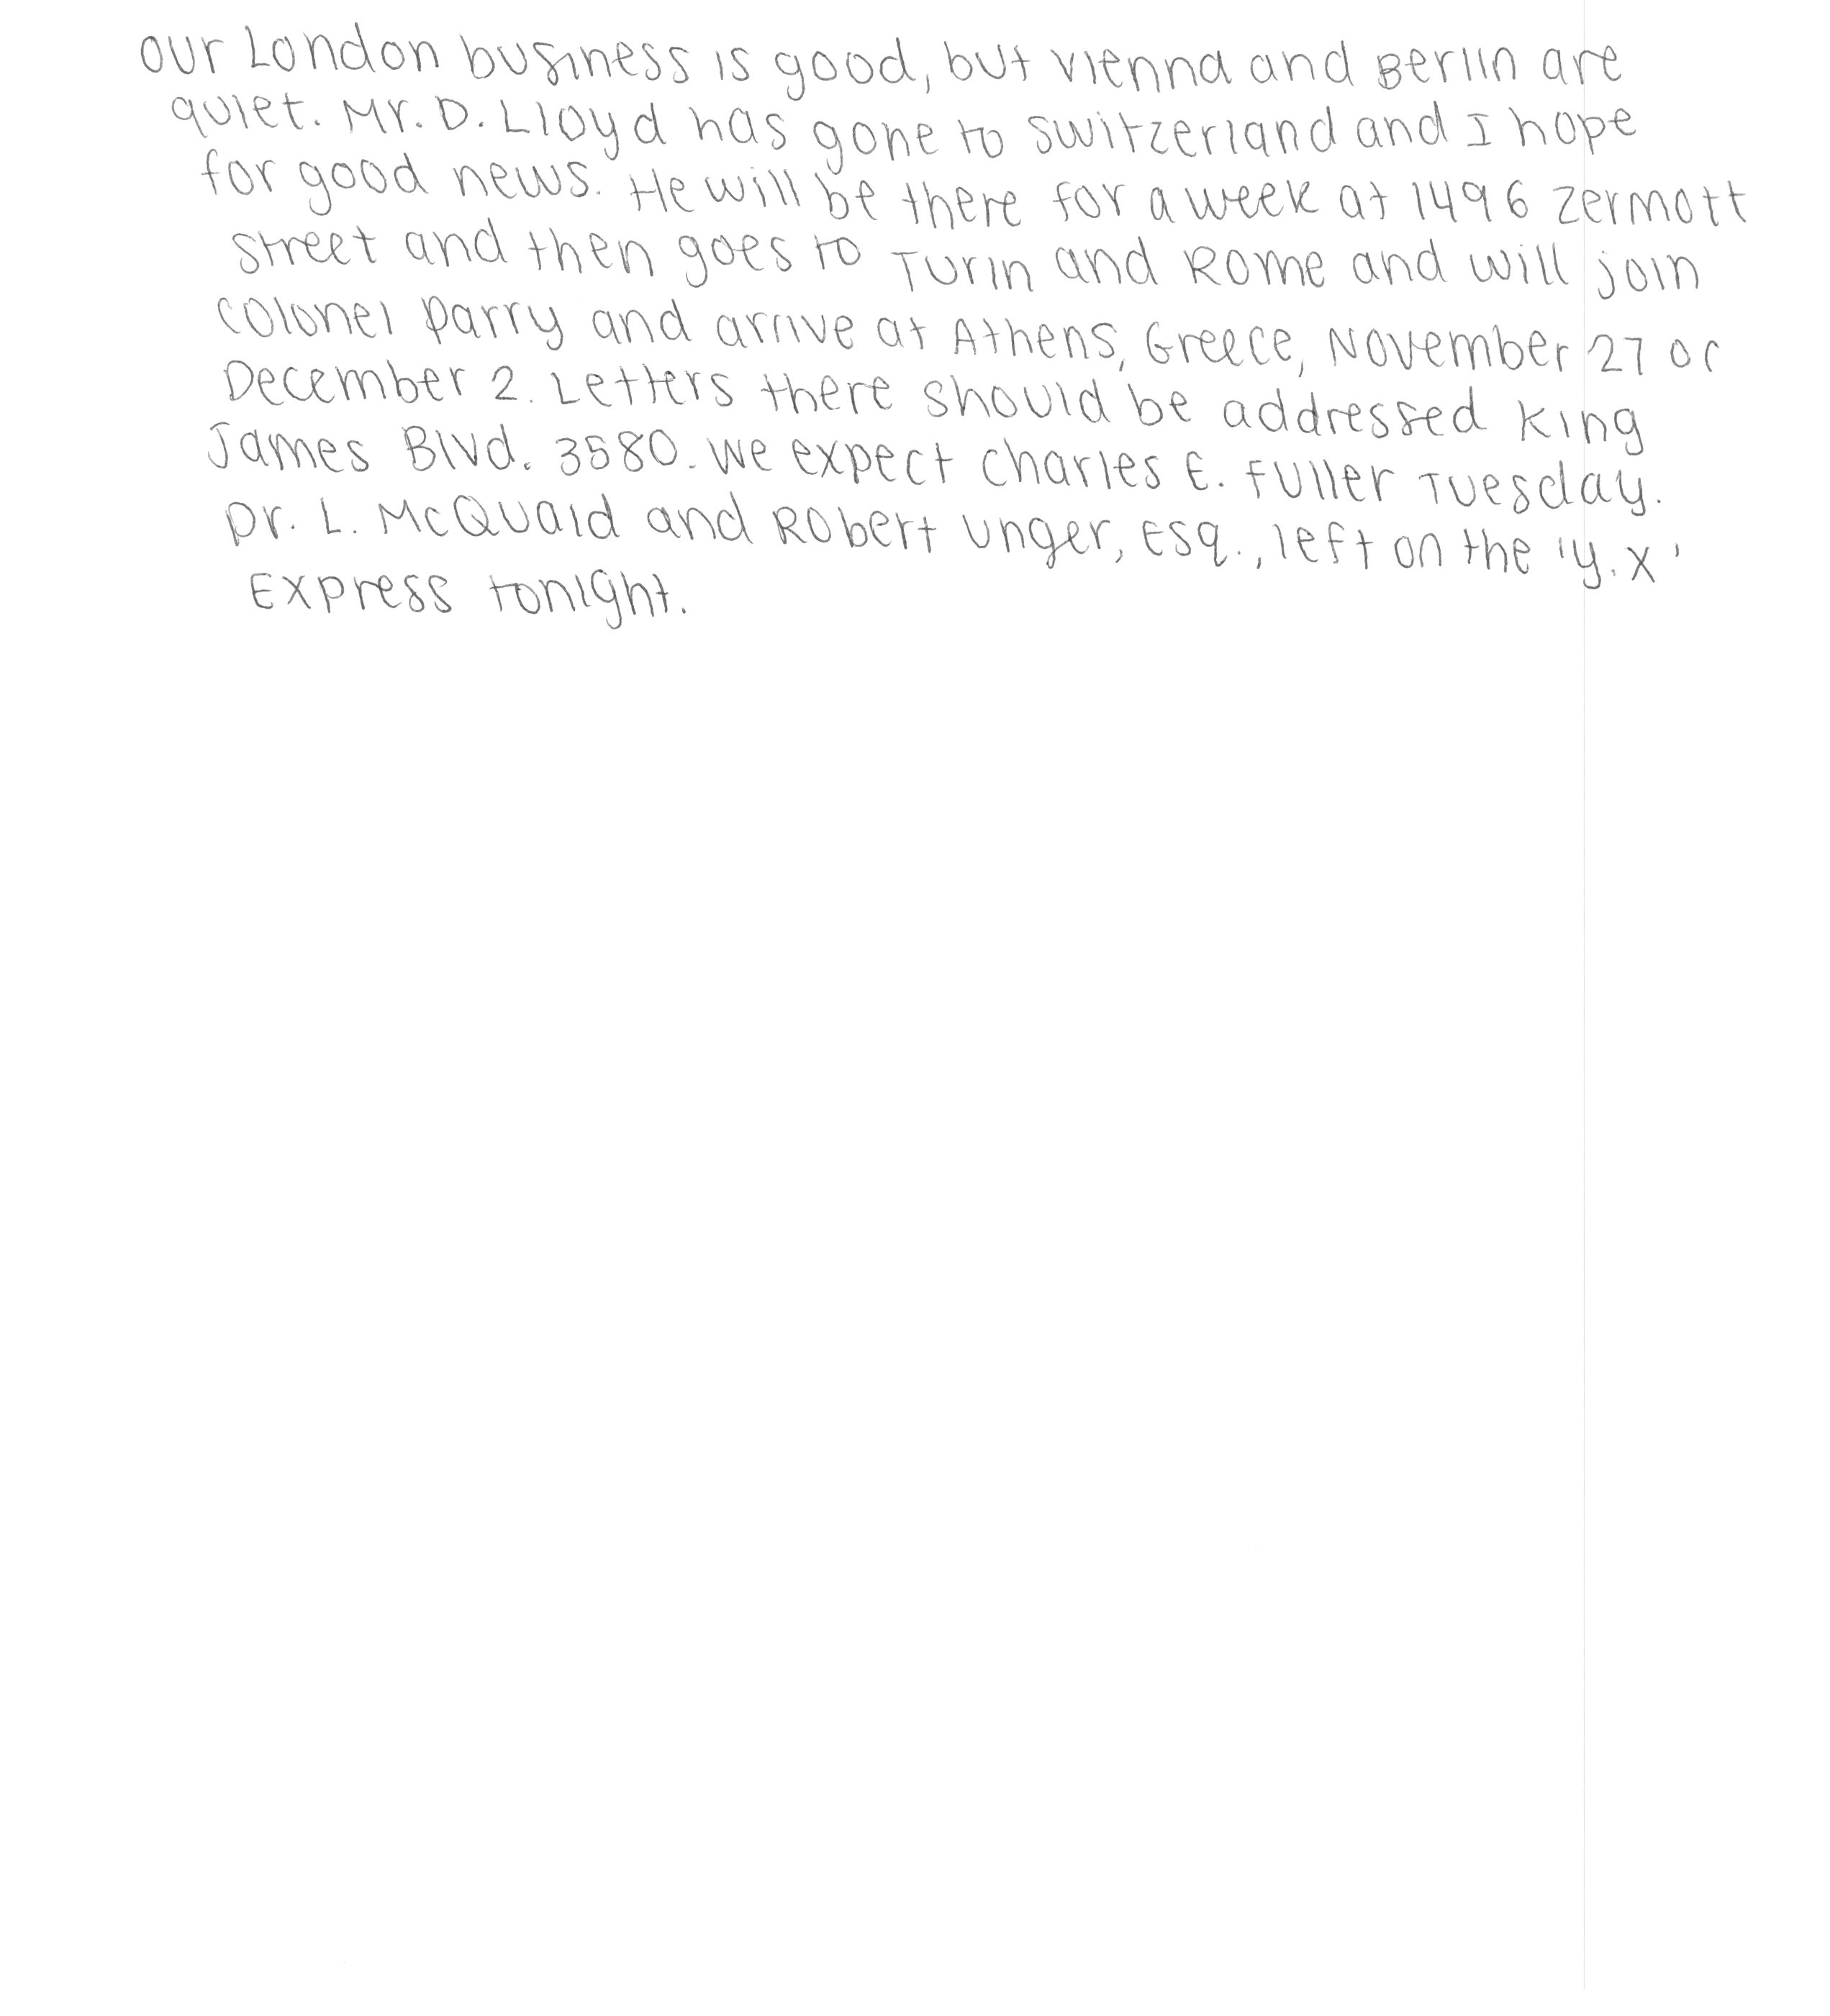 Our London business is good, but Vienna and Berlin are
quiet. Mr. D. Lloyd has gone to Switzerland and I hope
for good news. He will be there for a week at 1496 Zermott
street and then goes to Turin and Rome and will join
Colonel Parry and arrive at Athens, Greece, November 27 or
December 2. Letters there should be addressed King
James Blvd. 3580. We expect Charles E. Fuller Tuesday.
Dr. L. McQuaid and Robert Unger, Esq., left on the 'Y.X'
Express tonight.